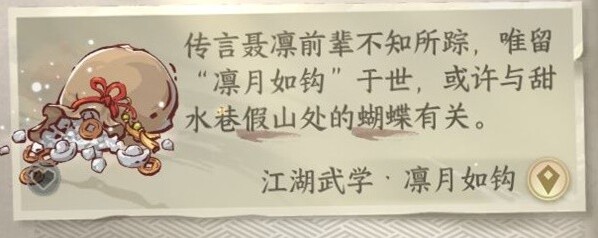 传言聂凛前辈不知所踪，唯留
“凛月如钩”于世，或许与甜
水巷假山处的蝴蝶有关。
江湖武学·凛月如钩